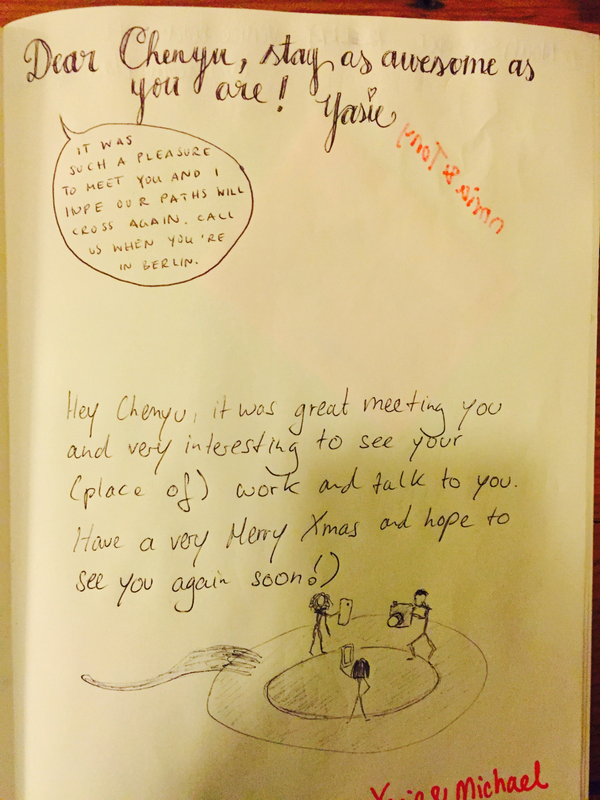 Dear Chenyu, stay as awesome as
you are!
Yasie
IT WAS
SUCH A PLEASURE
TO MEET YOU AND I
HOPE OUR PATHS WILL
CROSS AGAIN. CALL
US WHEN YOU'RE
IN BERLIN.
Hey Chenyu, it was great meeting you
and very interesting to see your
(place of) work and talk to you.
Have a very Merry Xmas and hope to
see you again soon!)
Yasie & Michael